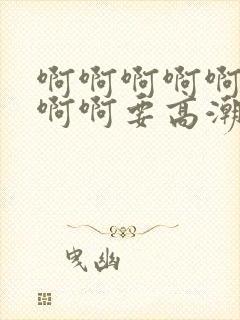 啊啊啊啊啊
啊啊要高潮
曳幽